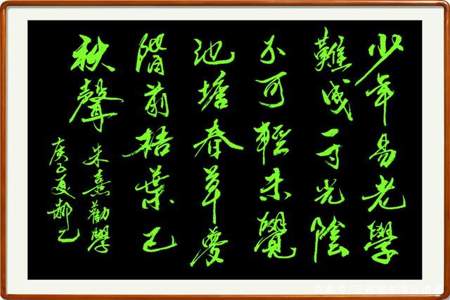 少年易老學
難成一寸光陰
不可輕未覺
池塘春草夢
階前梧葉已
秋聲
朱熹勸學
庚子夏